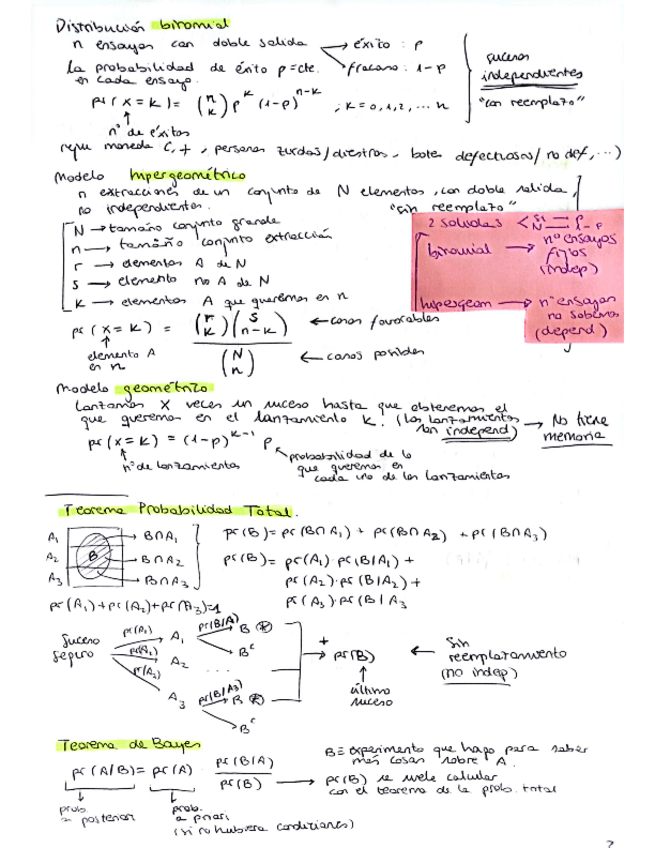 Distribución binomial
n ensayos con doble salida → éxito : p
la probabilidad de éxito p=cte. fracaso : 1-p
en cada ensayo.
sucesos
independientes
"con reemplazo"
pr(x=k) = (n k) p^k (1-p)^n-k ; k=0,1,2,... n
nº de éxitos
moneda C,+, personas zurdas/diestros, botes defectuosos/no def,...)
Modelo Hipergeométrico
n extracciones de un conjunto de N elementos, con doble salida,
no independientes. "sin reemplazo"
N → tamaño conjunto grande
n → tamaño conjunto extracción
r → elementos A de N
s → elemento no A de N
k → elementos A que queremos en n
2 salidas < si = p
N = 1-p
binomial → nº ensayos
fijos
(indep)
hipergeom → nº ensayos
no sabemos
(depend)
pr(x=k) = (r k)(s n-k) ← casos favorables
(N n) ← casos posibles
elemento A
en n
Modelo geométrico
Lanzamos X veces un suceso hasta que obtenemos el
que queremos en el lanzamiento k. (los lanzamientos
son independ) → No tiene
memoria
pr(x=k) = (1-p)^k-1 p
nº de lanzamientos
probabilidad de lo
que queremos en
cada uno de los lanzamientos
Teorema Probabilidad Total.
A1 → B∩A1
A2 B → B∩A2
A3 → B∩A3
pr(B) = pr(B∩A1) + pr(B∩A2) + pr(B∩A3)
pr(B) = pr(A1)·pr(B/A1) +
pr(A2)·pr(B/A2) +
pr(A3)·pr(B/A3
pr(A1)+pr(A2)+pr(A3)=1
Suceso
seguro
pr(A1) A1 pr(B/A) B ⊛
B^c
pr(A2) A2 ...
pr(A3) A3 pr(B/A3) B ⊛
B^c
+
→ pr(B)
último
suceso
← Sin
reemplazamiento
(no indep)
Teorema de Bayes
pr(A/B) = pr(A) · pr(B/A) / pr(B)
B≡ experimento que hago para saber
más cosas sobre A.
→ pr(B) se suele calcular
con el teorema de la prob. total
prob.
a posteriori
prob.
a priori
(si no hubiera condiciones)
2